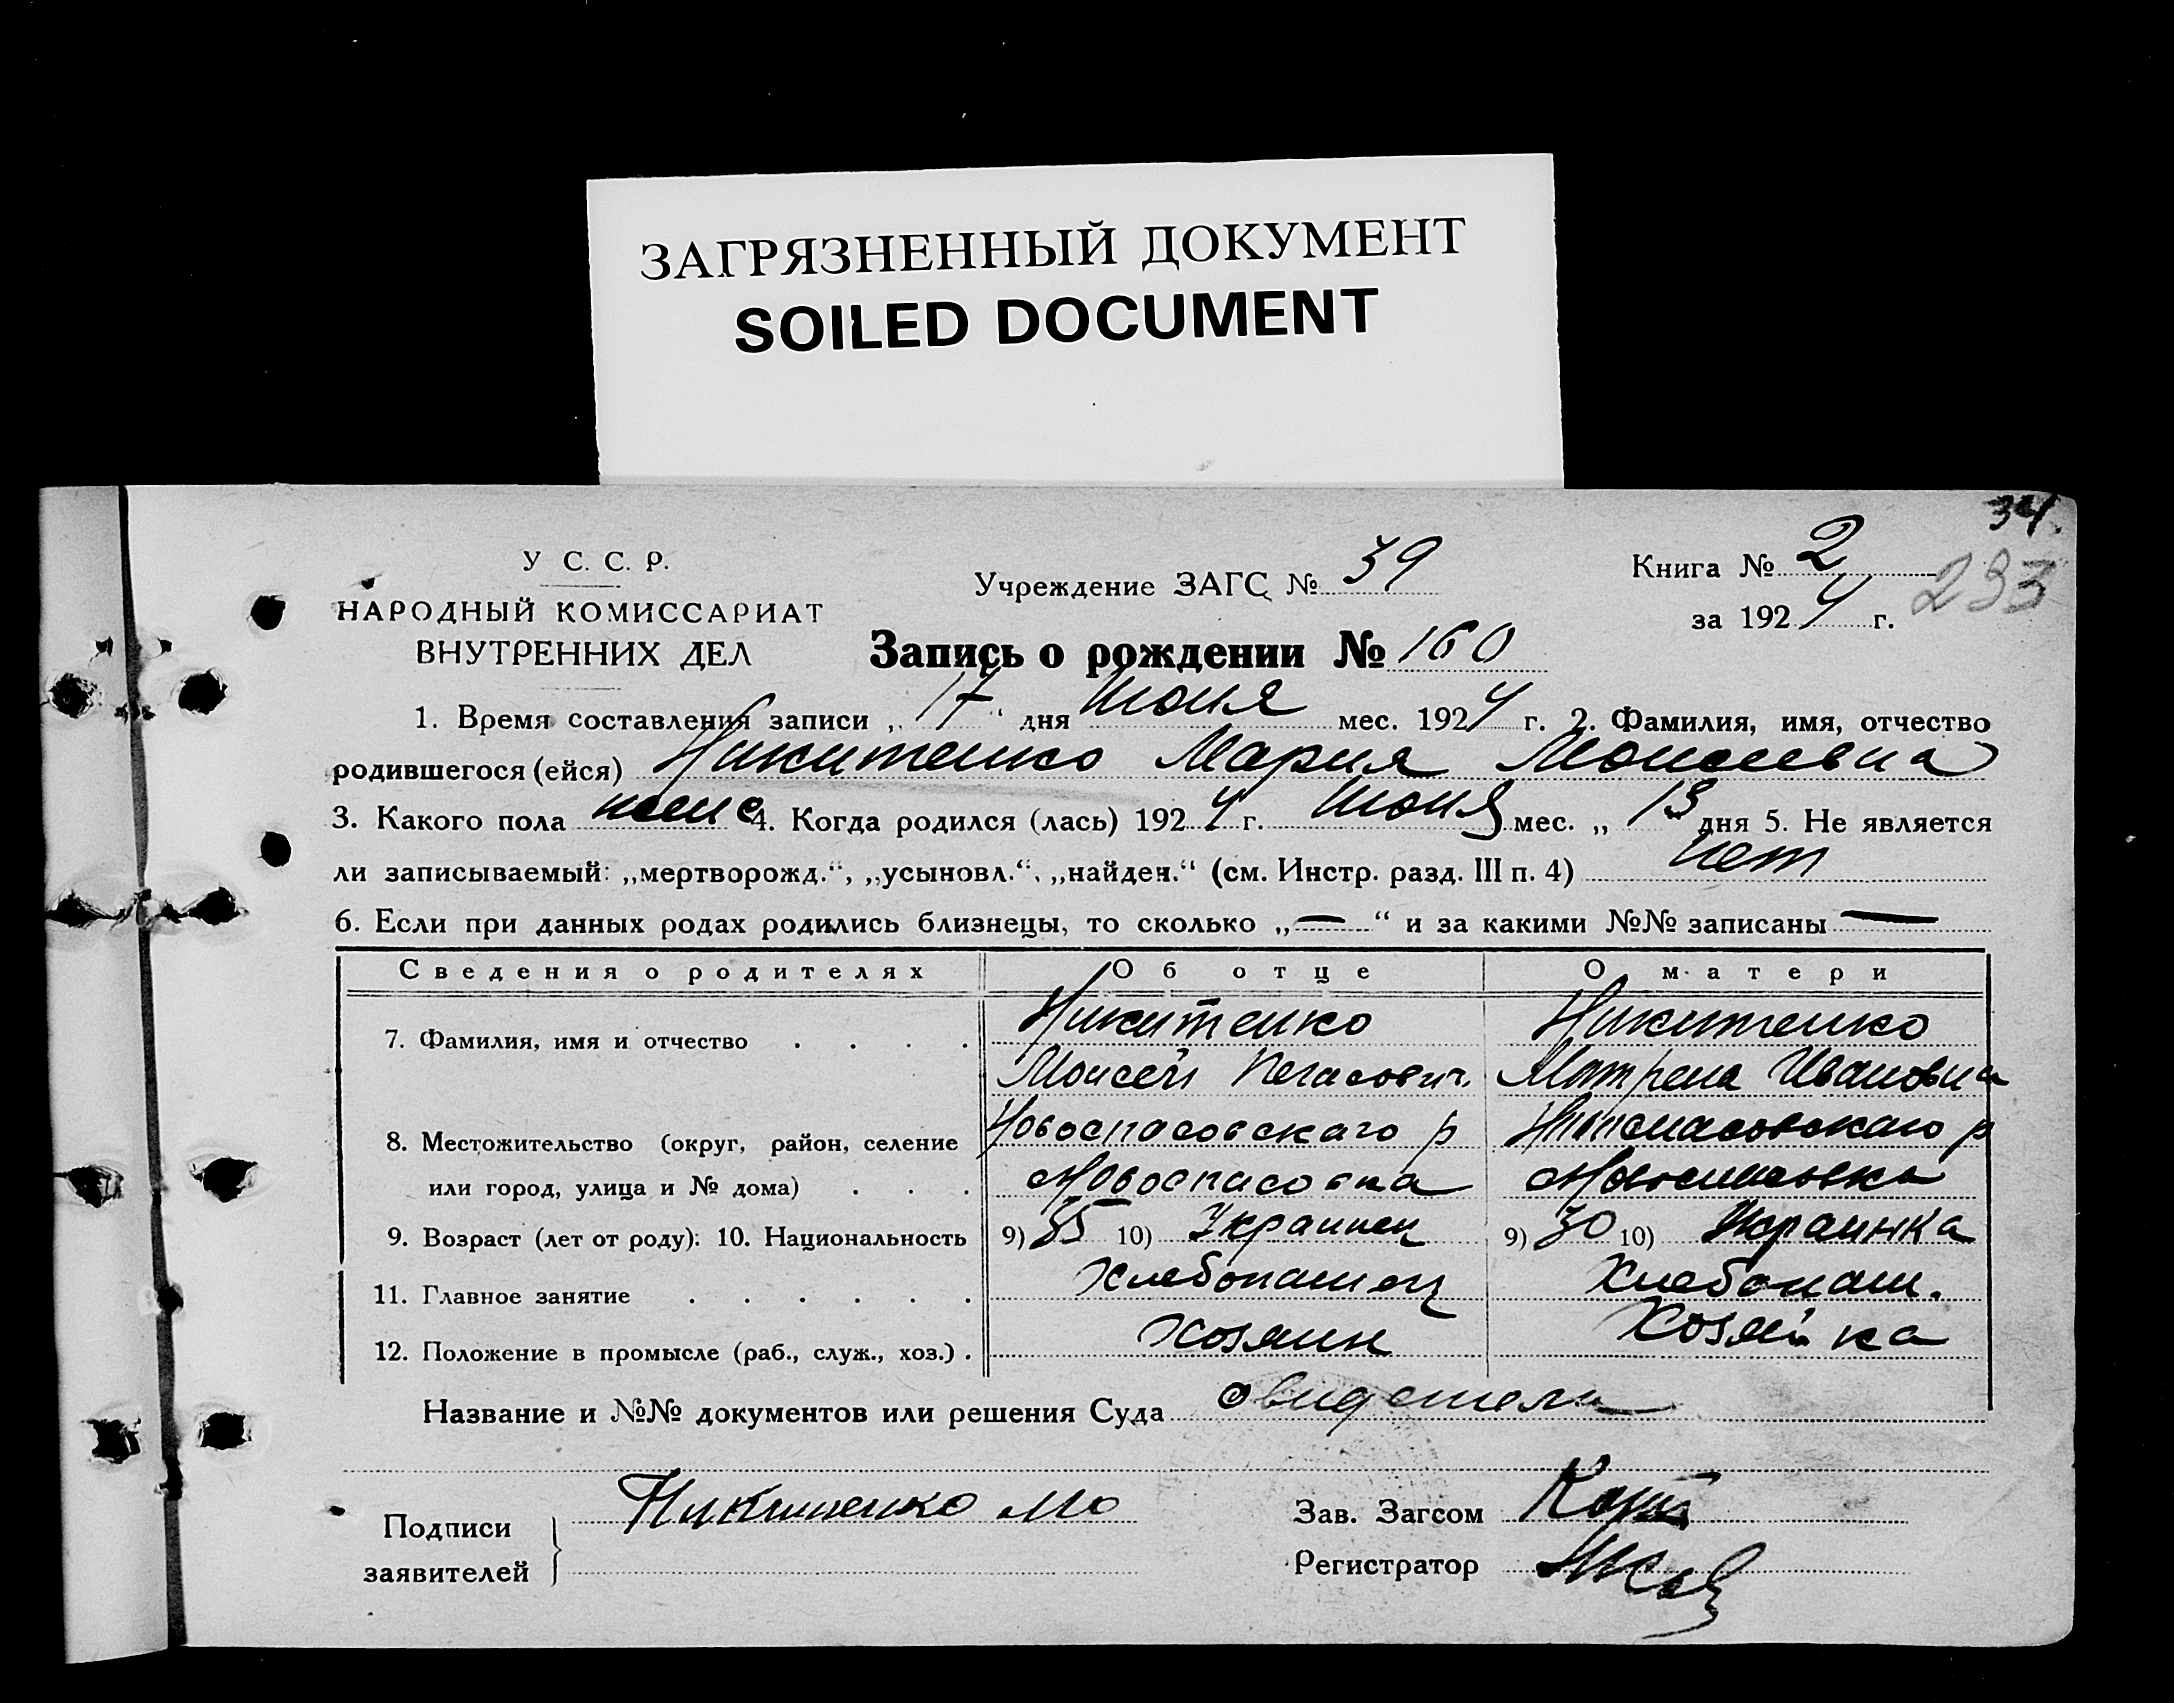 ЗАГРЯЗНЕННЫЙ ДОКУМЕНТ
SOILED DOCUMENT
34.
У С. С. Р.
НАРОДНЫЙ КОМИССАРИАТ
ВНУТРЕННИХ ДЕЛ
Учреждение ЗАГС № 39
Книга № 2
за 1924 г.
293
Запись о рождении № 160
1. Время составления записи „17“ дня Июня мес. 1924 г. 2. Фамилия, имя, отчество
родившегося (ейся) Никитенко Мария Моисеевна
3. Какого пола женс 4. Когда родился (лась) 1924 г. Июня мес. „13 дня 5. Не является
ли записываемый: „мертворожд.“, „усыновл.“, „найден.“ (см. Инстр. разд. III п. 4) Нет
6. Если при данных родах родились близнецы, то сколько „—“ и за какими №№ записаны —
Сведения о родителях Об отце О матери
7. Фамилия, имя и отчество . . . . Никитенко Никитенко
Моисей Матрена Ивановна
8. Местожительство (округ, район, селение Новоспасовскаго р Новоспасовскаго р
или город, улица и № дома) . . . Новоспасовка Новоспасовка
9. Возраст (лет от роду): 10. Национальность 9) 35 10) Украинец 9) 30 10) Украинка
11. Главное занятие . . . . . . Хлебопашец Хлебопаш.
12. Положение в промысле (раб., служ., хоз.) . Хозяин Хозяйка
Название и №№ документов или решения Суда Свидетели
Подписи
заявителей
Никитенко Мо
Зав. Загсом
Регистратор